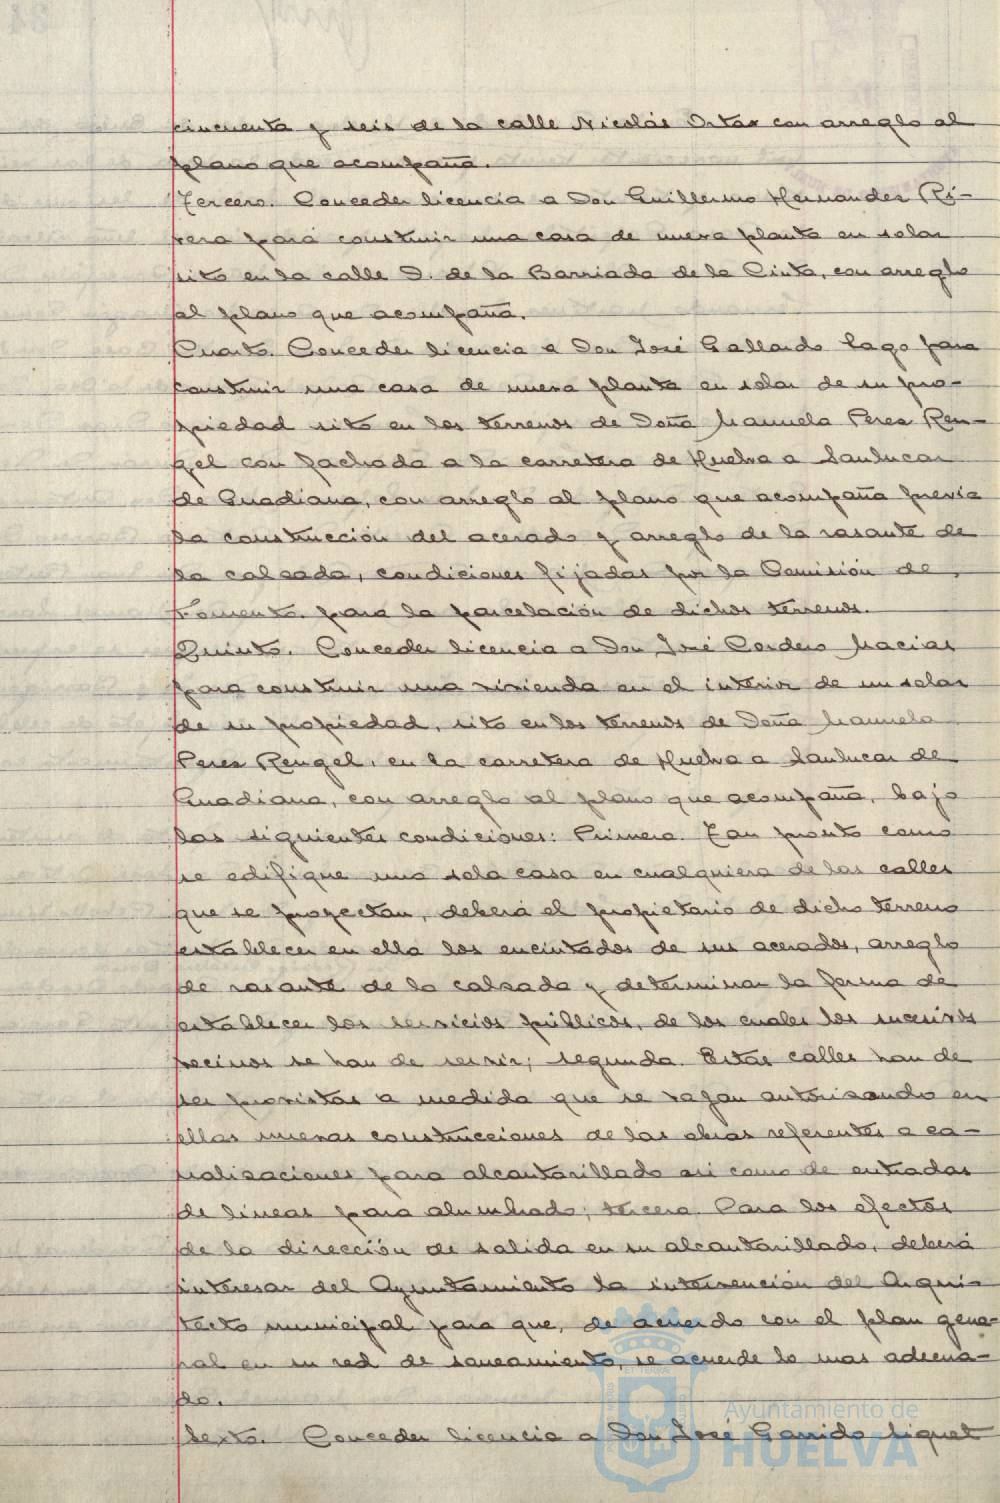 cincuenta y seis de la calle Nicolás Orta con arreglo al
plano que acompaña.
Tercero. Conceder licencia a Don Guillermo Hernandez Ri-
vera para construir una casa de nueva planta en solar
sito en la calle D. de la Barriada de la Cinta, con arreglo
al plano que acompaña.
Cuarto. Conceder licencia a Don José Gallardo Lago para
construir una casa de nueva planta en solar de su pro-
piedad sito en los terrenos de Doña Manuela Perez Ren-
gel con fachada a la carretera de Huelva a Sanlucar
de Guadiana, con arreglo al plano que acompaña previa
la construcción del acerado y arreglo de la rasante de
la calzada, condiciones fijadas por la Comisión de
Fomento para la parcelación de dichos terrenos.
Quinto. Conceder licencia a Don José Cordero Macias
para construir una vivienda en el interior de un solar
de su propiedad, sito en los terrenos de Doña Manuela
Perez Rengel, en la carretera de Huelva a Sanlucar de
Guadiana, con arreglo al plano que acompaña, bajo
las siguientes condiciones: Primera. Tan pronto como
se edifique una sola casa en cualquiera de las calles
que se proyectan, deberá el propietario de dicho terreno
establecer en ella los encintados de sus acerados, arreglo
de rasante de la calzada y determinar la forma de
establecer los servicios públicos, de los cuales los sucesivos
vecinos se han de servir; segunda. Estas calles han de
ser provistas a medida que se vayan autorizando en
ellas nuevas construcciones de las obras referentes a ca-
nalizaciones para alcantarillado asi como de entradas
de lineas para alumbrado; tercera. Para los efectos
de la dirección de salida en su alcantarillado, deberá
interesar del Ayuntamiento la intervención del Arqui-
tecto municipal para que, de acuerdo con el plan gene-
ral en su red de saneamiento, se acuerde lo mas adecua-
do.
Sexto. Conceder licencia a Don José Garrido Liquet
Ayuntamiento de
HUELVA